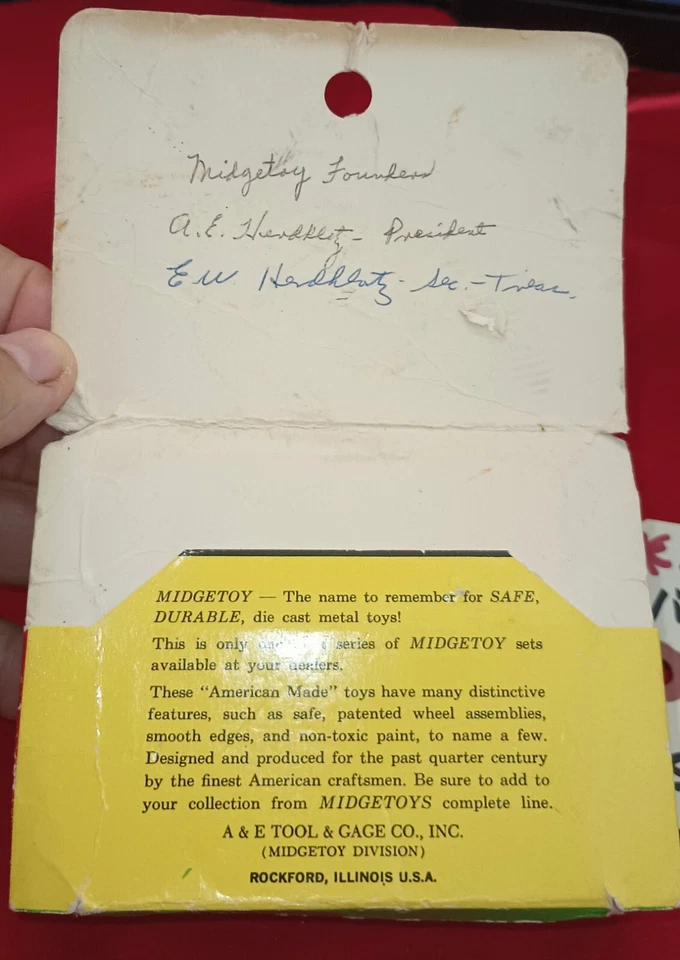 Midgetoy Founders
A.E. Herdklotz - President
E W. Herdklotz - Sec. - Treas.
MIDGETOY — The name to remember for SAFE,
DURABLE, die cast metal toys!
This is only series of MIDGETOY sets
available at your dealers.
These "American Made" toys have many distinctive
features, such as safe, patented wheel assemblies,
smooth edges, and non-toxic paint, to name a few.
Designed and produced for the past quarter century
by the finest American craftsmen. Be sure to add to
your collection from MIDGETOYS complete line.
A & E TOOL & GAGE CO., INC.
(MIDGETOY DIVISION)
ROCKFORD, ILLINOIS U.S.A.